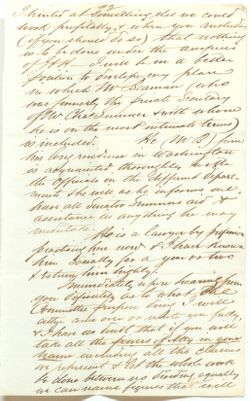 I hinted at something else we could
work profitably, when you authorize
(if you should do so) that nothing
is to be done under the auspices
of J.H. I will be in a better
position to develope my plans
in which Mr Seaman (who
was formerly the private Secretary
of Mr Chas Sumner & with whom
he is on the most intimate terms)
is included. He (Mr S) from
his long residence in Washington
is acquainted thoroughly with
the officials in the different Depart-
ments & he will as he informs me
have all Senator Sumners aid &
assistance in anything he may
undertake. He is a lawyer by profession
practising here now & I have known
him socially for a year or two
& esteem him highly.
Immediately upon hearing from
you definitely as to what the
Committee propose doing, I will
come over or write you fully,
& I have no doubt that if you will
take all the powers of Atty in your
name including all the claims
we represent & let the whole work
be done between us dividing equally
we can name figures that will